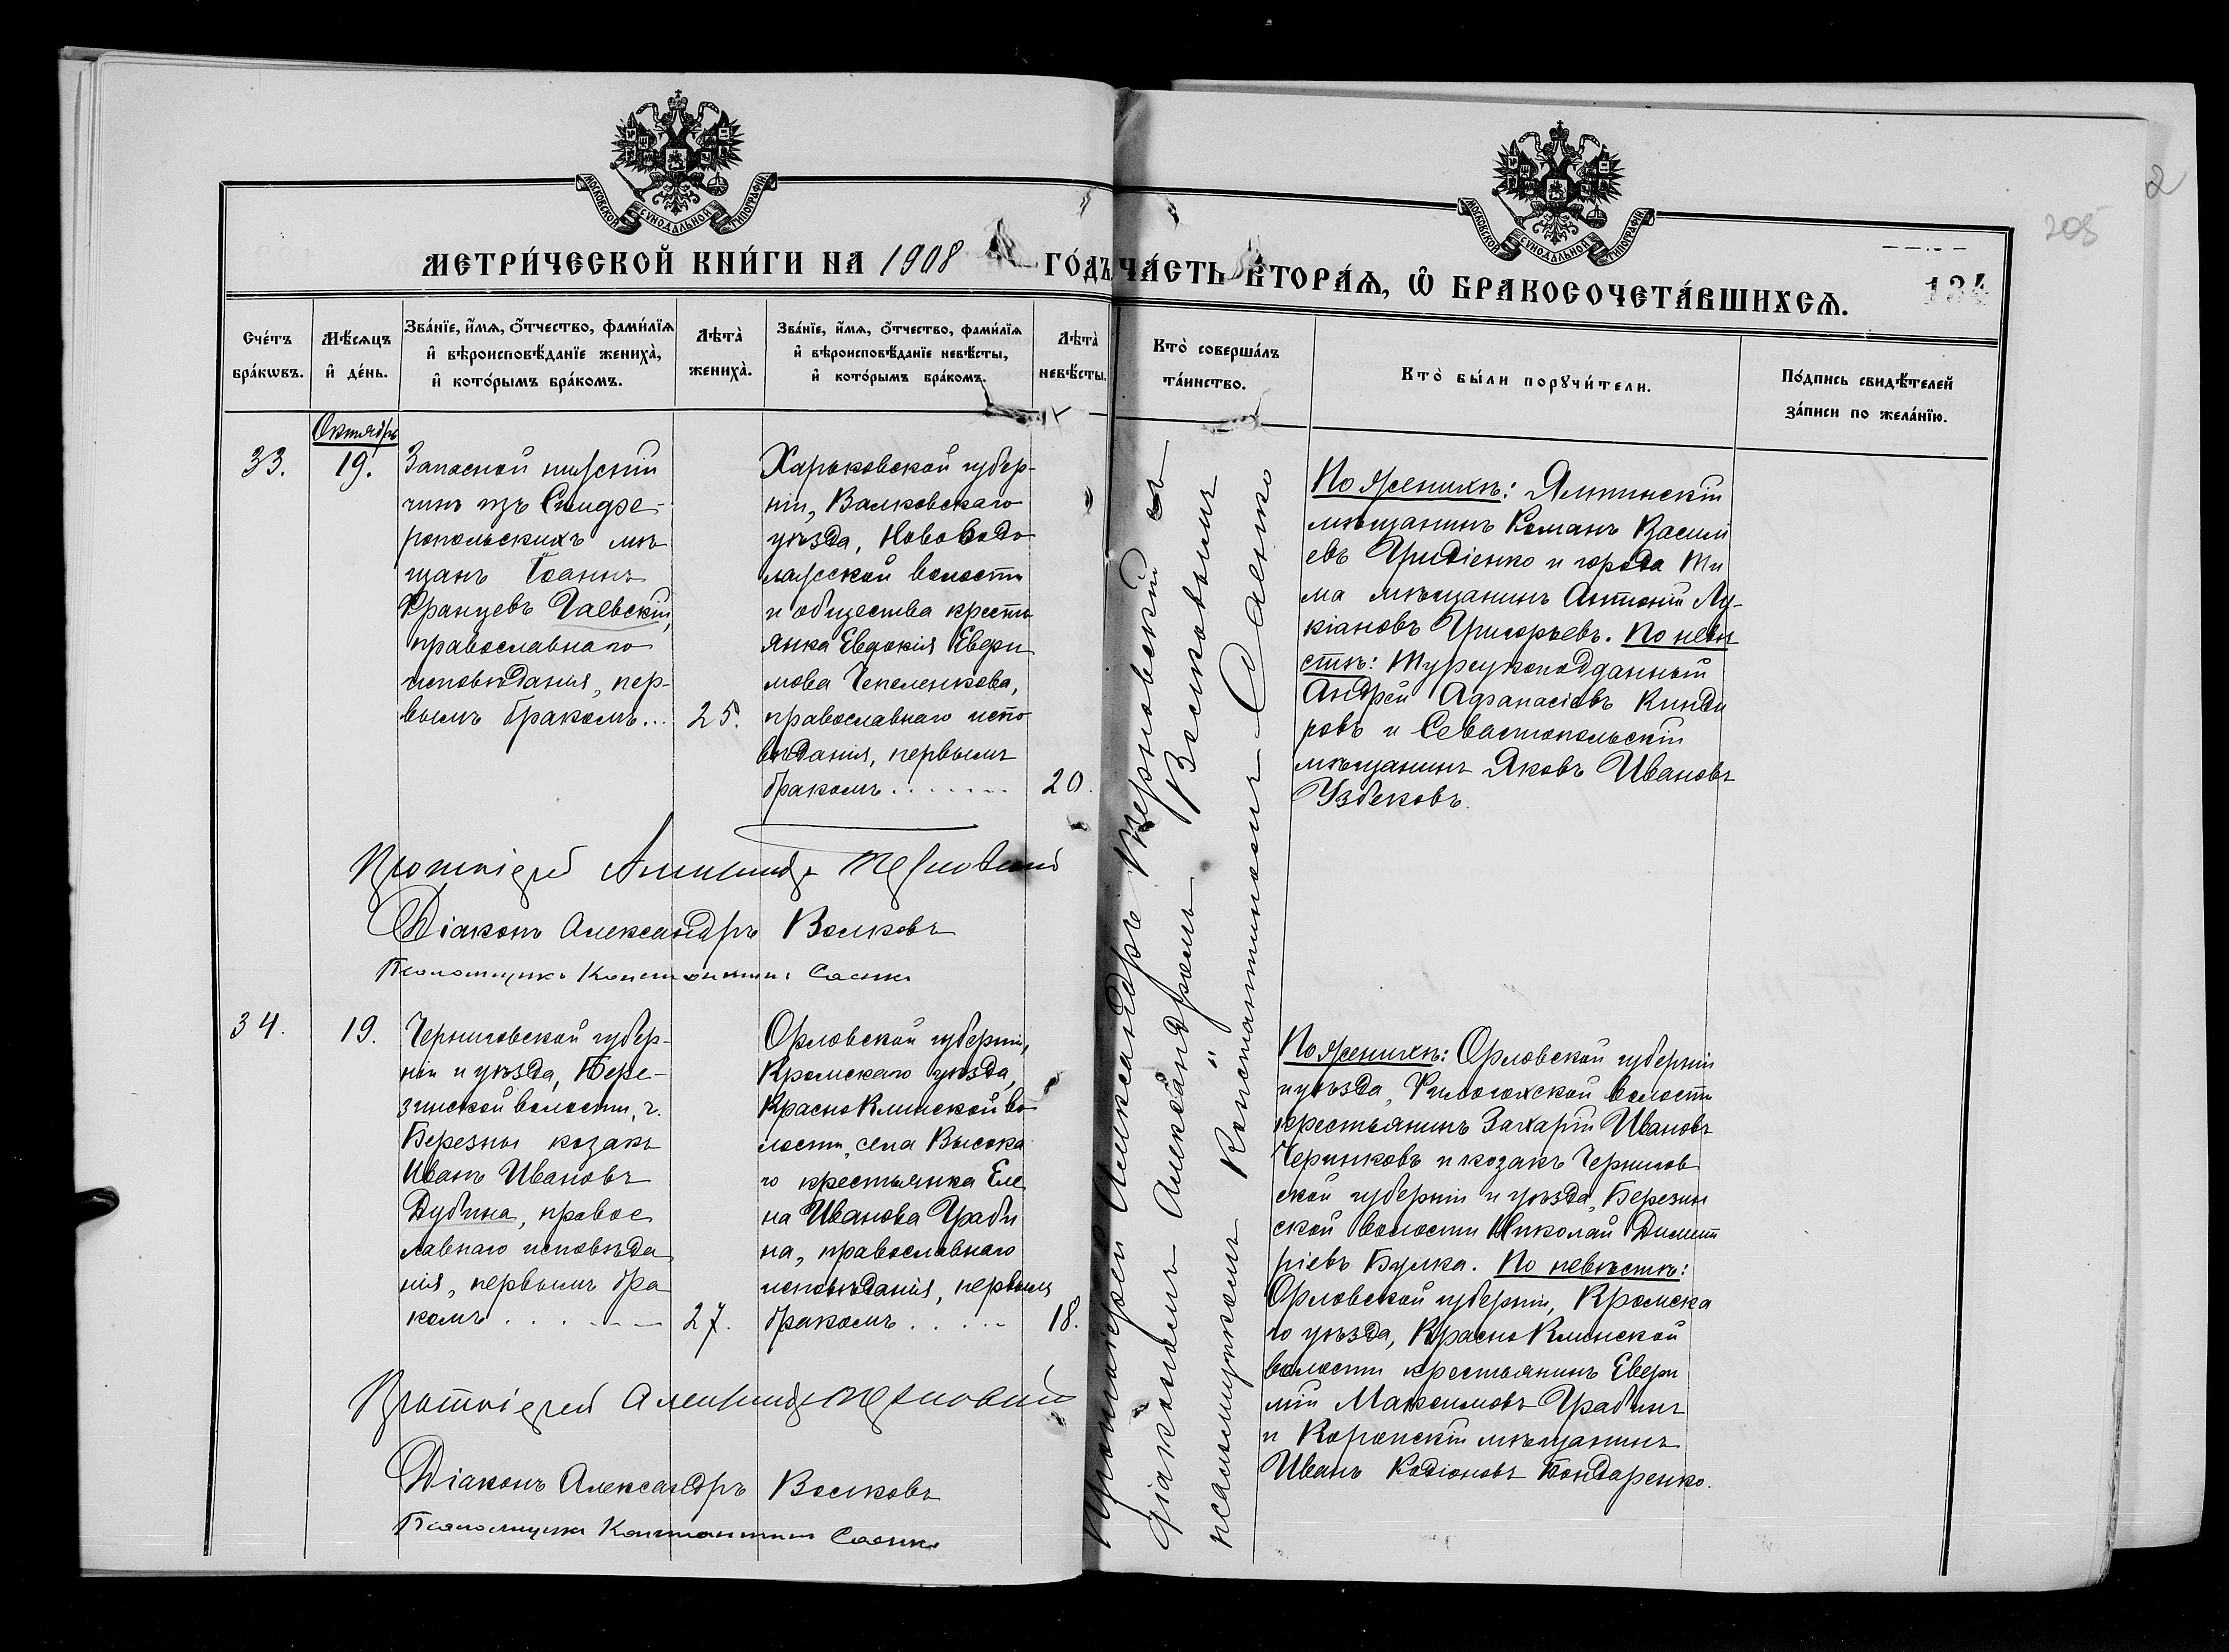 МОСКОВСКОЙ СѴНОДАЛЬНОЙ ТИПОГРАФІИ
МОСКОВСКОЙ СѴНОДАЛЬНОЙ ТИПОГРАФІИ
2
205
МЕТРИ́ЧЕСКОЙ КНИ́ГИ НА 1908 ГО́ДЪ
ЧА́СТЬ ВТОРА́Я, Ѡ БРАКОСОЧЕТА́ВШИХСЯ.
124
Сче́тъ бра́кѡвъ.
Мѣ́сяцъ и҆ де́нь.
Зва́нїе, и҆́мя, ѻ҆́тчество, фами́лїя
и҆ вѣроисповѣ́данїе жениха̀,
и҆ кото́рымъ бра́комъ.
Лѣта̀ жениха̀.
Зва́нїе, и҆́мя, ѻ҆́тчество, фами́лїя
и҆ вѣроисповѣ́данїе невѣ́сты,
и҆ кото́рымъ бра́комъ.
Лѣта̀ невѣ́сты.
Кто̀ соверша́лъ
та́инство.
Кто̀ бы́ли порꙋчи́тели.
По́дпись свидѣ́телей
за́писи по жела́нїю.
Октябрь
33.
19.
Запасной нижній
чинъ изъ Симфе-
ропольскихъ мѣ
щанъ Іоаннъ
Францевъ Гаевскій,
православнаго
исповѣданія, пер-
вымъ бракомъ...
25.
Харьковской губер-
ніи, Валковскаго
уѣзда, Ново Водо
лажской волости
и общества кресть
янка Евдокія Евфи
мова Чепеленкова,
православнаго испо
вѣданія, первымъ
бракомъ.......
20.
Протоіерей Александръ Терновскій съ
діакономъ Александромъ Волковымъ
и псаломщикомъ Константиномъ Саенко
По женихѣ: Ялтинскій
мѣщанинъ Романъ Васил
евъ Гридіенко и города Ти
ма мѣщанинъ Антоній Лу-
кіановъ Григорьевъ. По невѣ
стѣ: Турецкоподданный
Андрей Афанасіевъ Кинди
ровъ и Севастопольскій
мѣщанинъ Яковъ Ивановъ
Узбековъ.
Протоіерей Александръ Терновскій
Діаконъ Александръ Волковъ
Псаломщикъ Константинъ Саенко
34.
19.
Черниговской губер-
ніи и уѣзда, Бере-
зинской волости, г.
Березны козакъ
Иванъ Ивановъ
Дубина, правос
лавнаго исповѣда
нія, первымъ бра
комъ.......
27.
Орловской губерніи,
Кромскаго уѣзда,
Красно Клинской во
лости, села Высока
го крестьянка Еле
на Иванова Граби
на, православнаго
исповѣданія, первымъ
бракомъ.....
18.
По женихѣ: Орловской губерніи
и уѣзда, волости
крестьянинъ Захарій Ивановъ
Черниковъ и козакъ Чернигов
ской губерніи и уѣзда, Березин
ской волости Николай Димит
ріевъ Булка. По невѣстѣ:
Орловской губерніи, Кромска
го уѣзда, Красно Клинской
волости крестьянинъ Евфи
мій Максимовъ Грабинъ
и Коропскій мѣщанинъ
Иванъ Родіоновъ Бондаренко.
Протоіерей Александръ Терновскій
Діаконъ Александръ Волковъ
Псаломщикъ Константинъ Саенко